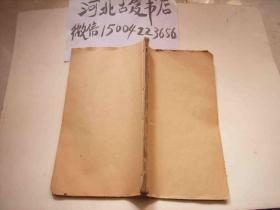 河北古受书店
微信15004223656